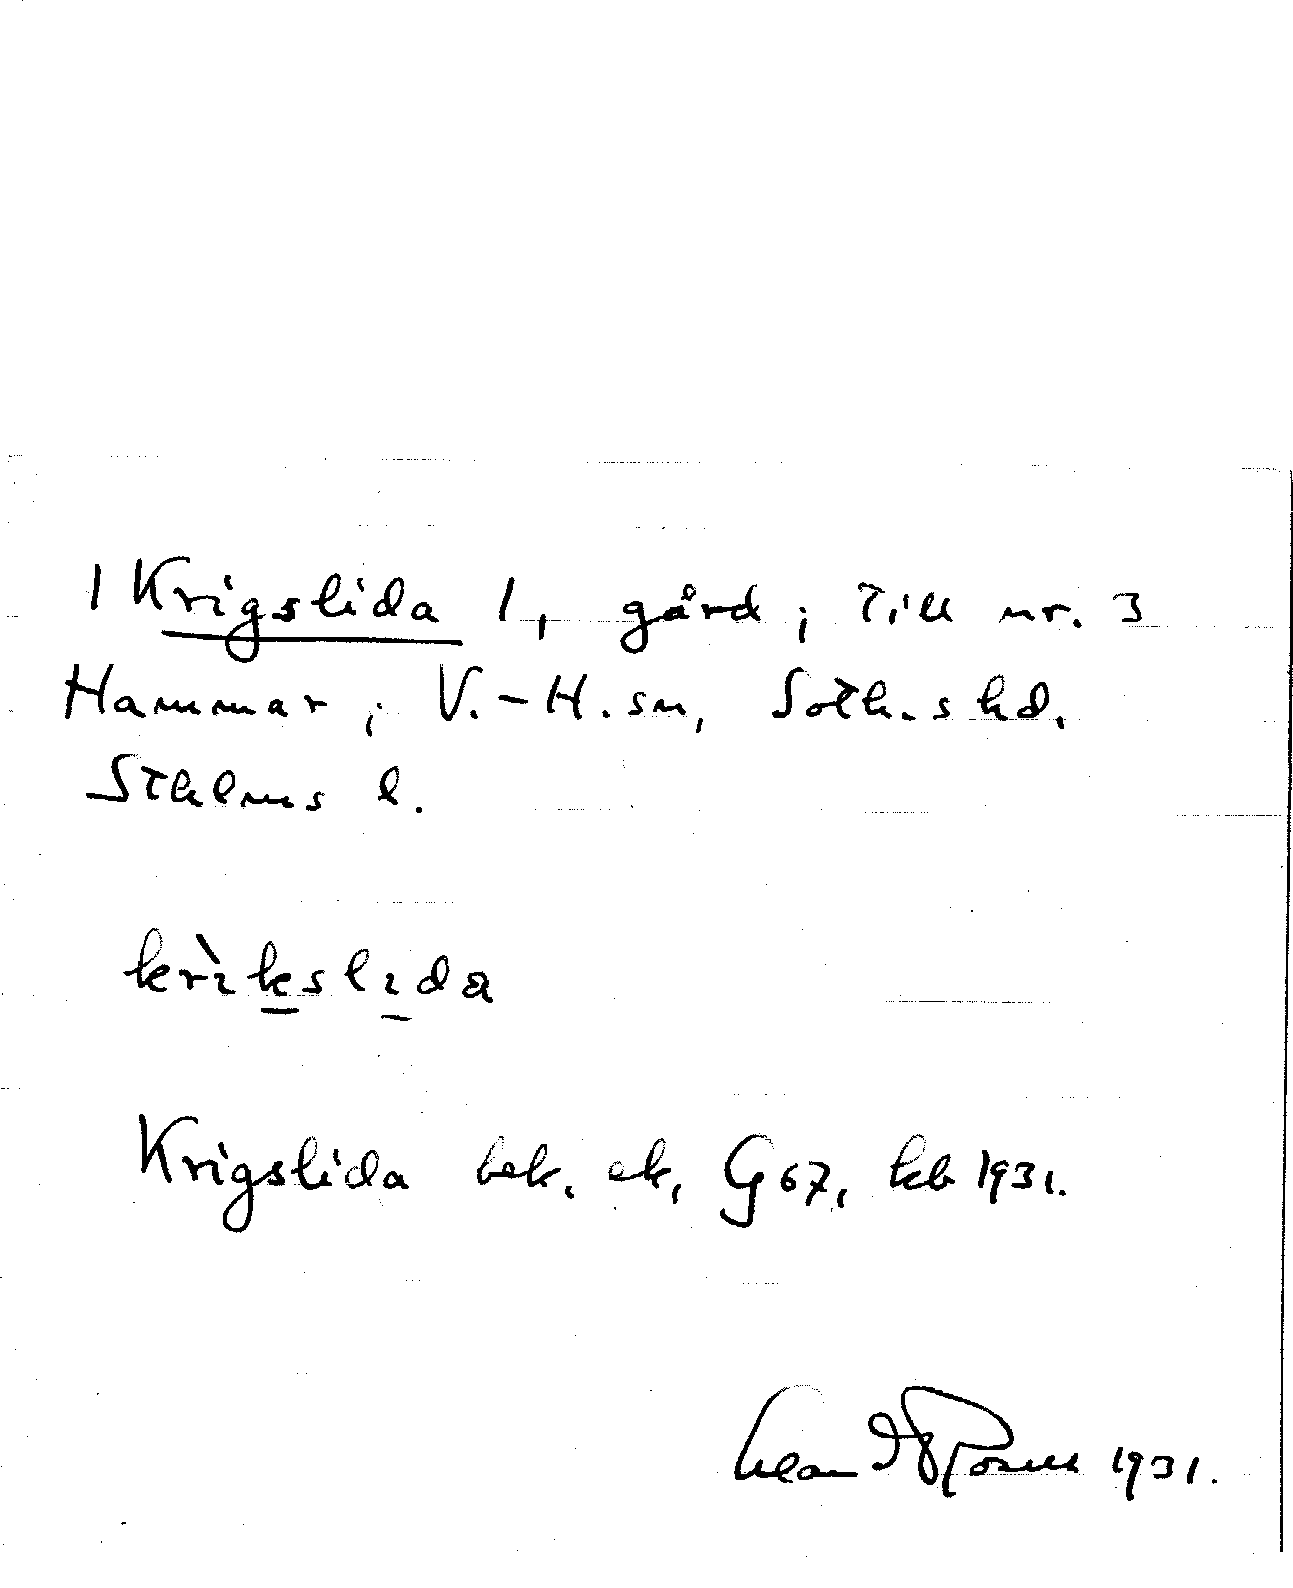 1 Krigslida 1, gård; till nr. 3
Hammar, V.-H. sn, Soth.s hd.
Sthlms l.
krìkslıda
Krigslida bek. ek, G67, kb 1931.
1931.